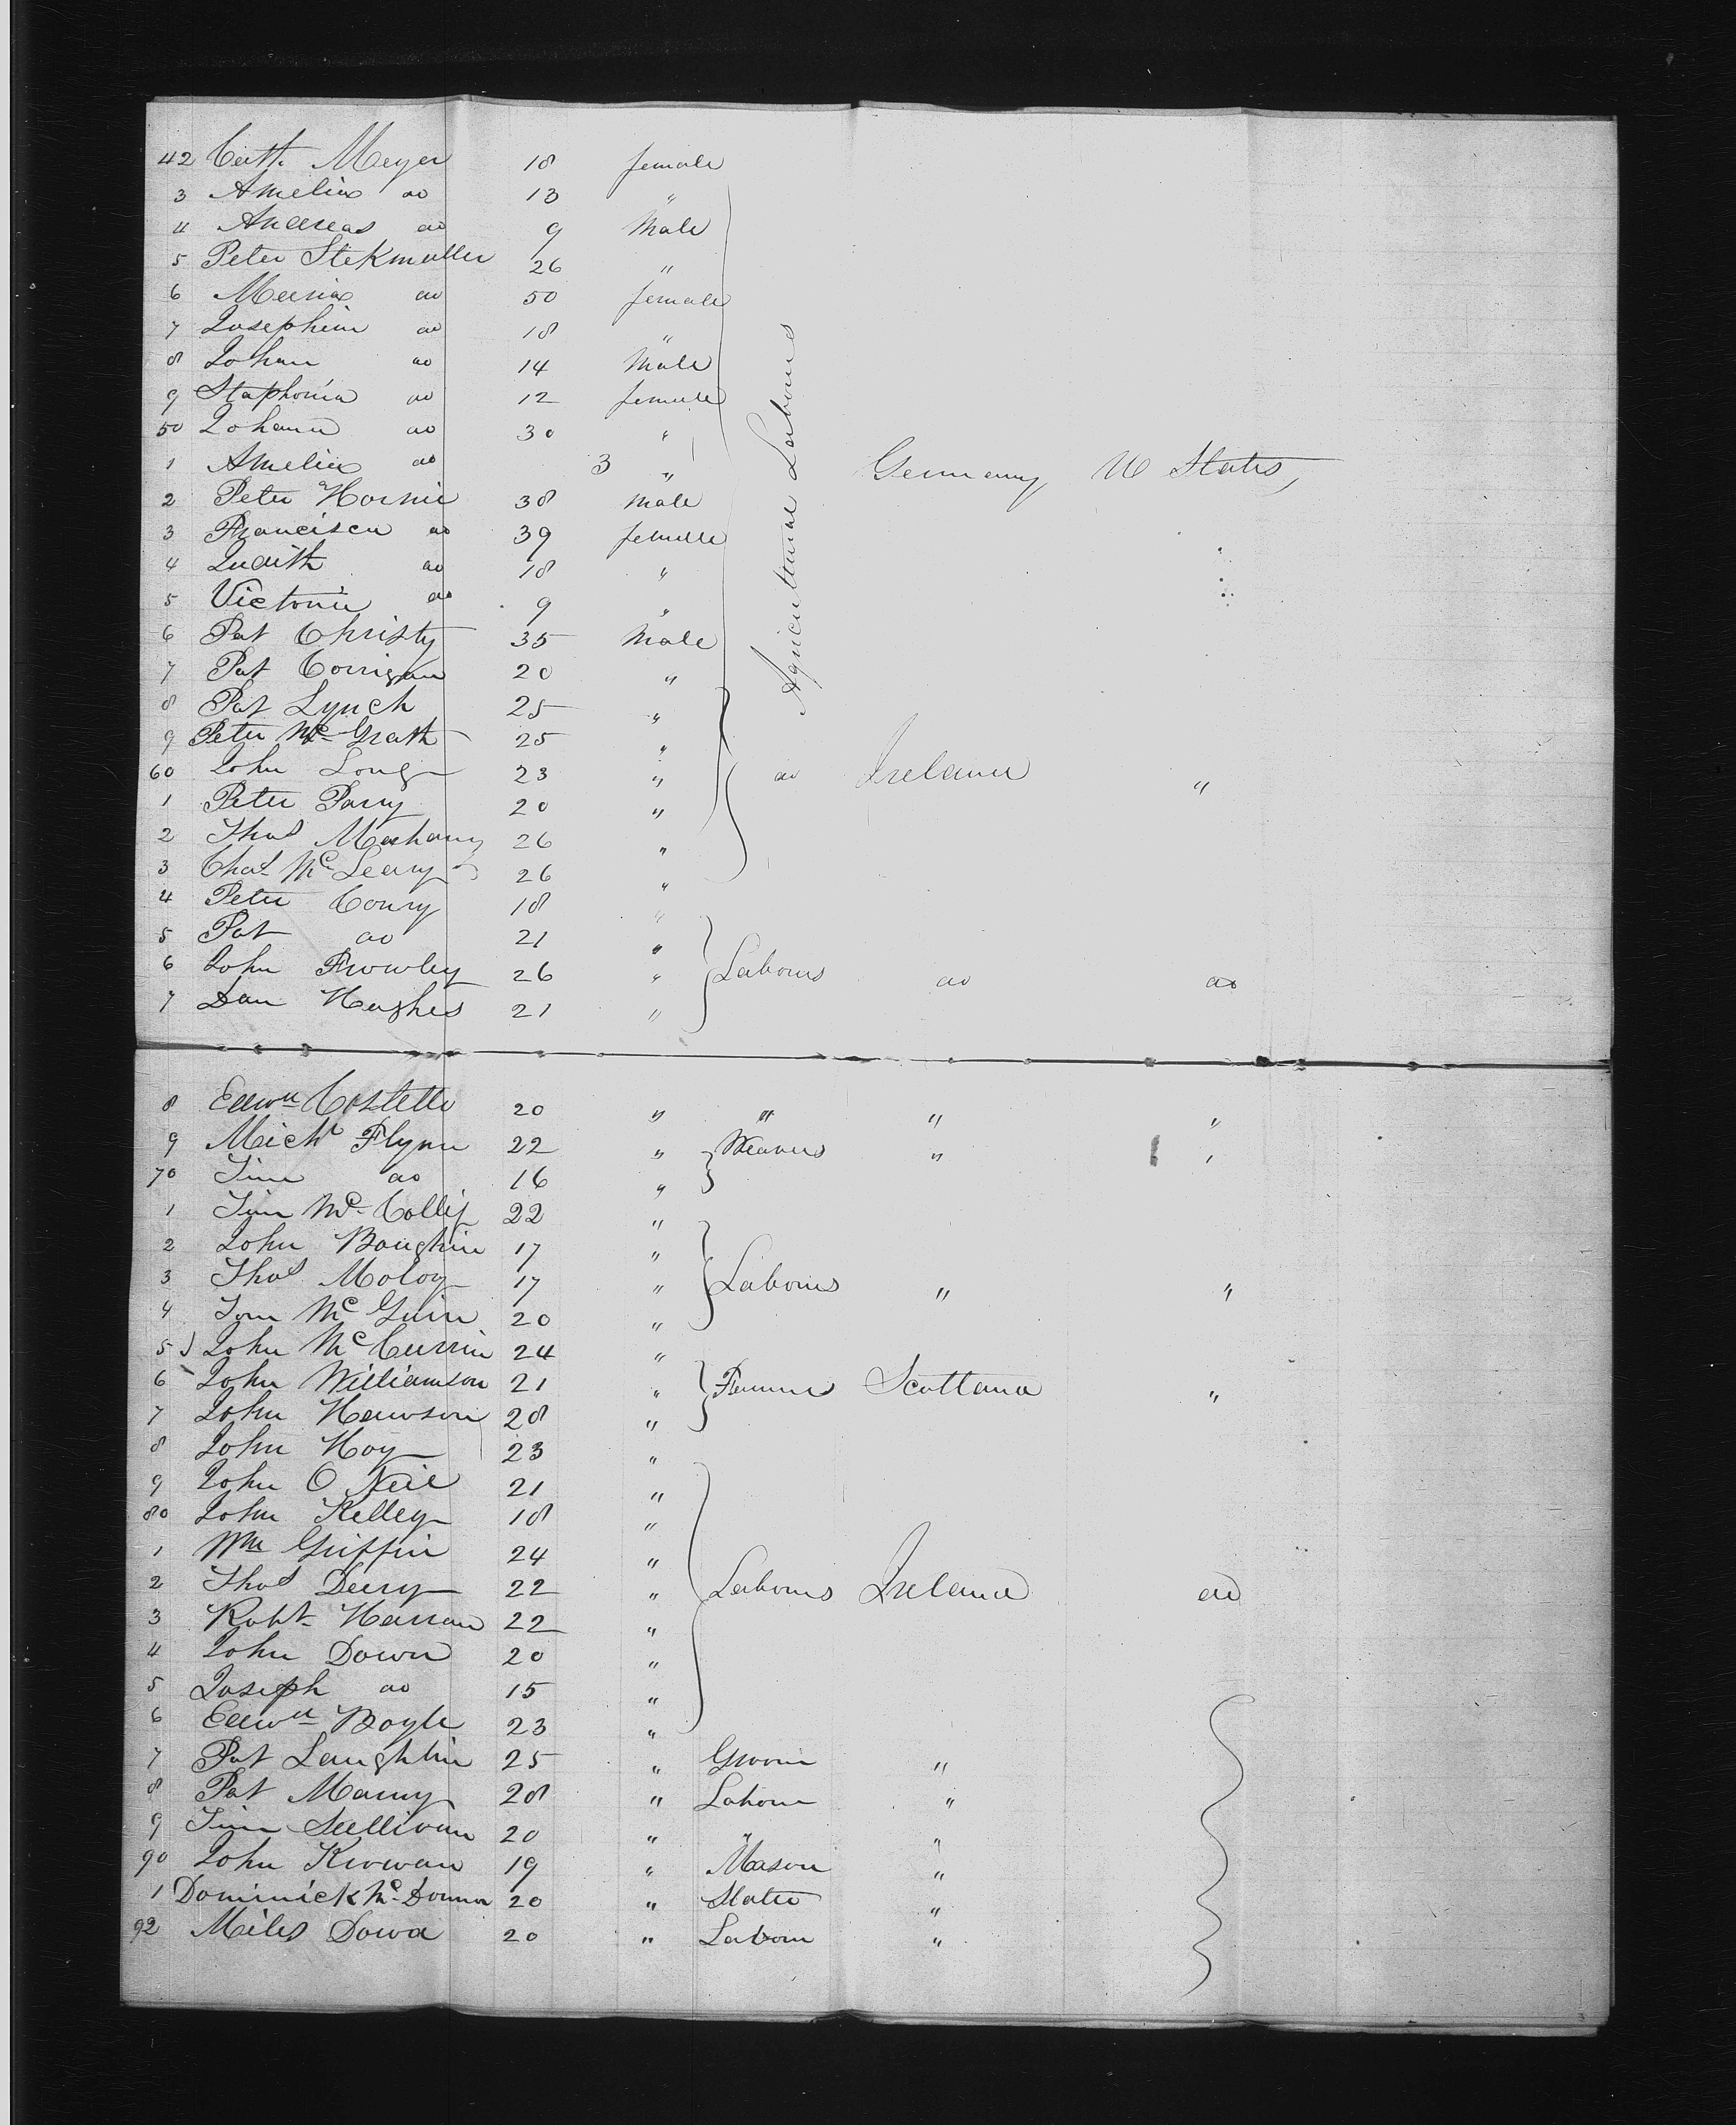 42 Cath. Meyer 18 female
3 Amelia do 13 "
4 Andreas do 9 Male
5 Peter Stekmuller 26 "
6 Maria do 50 female
7 Josephin do 18 "
8 Johan do 14 Male
9 Staphonia do 12 female
50 Johanna do 30 "
1 Amelia do 3 " Germany U States
2 Peter Hornie 38 Male
3 Francisca do 39 female
4 Judith do 18 "
5 Victoria do 9 "
Agricultural Labours
6 Pat Christy 35 Male
7 Pat Corrigan 20 "
8 Pat Lynch 25 "
9 Peter Mc Grath 25 "
60 John Long 23 " do Ireland "
1 Peter Parry 20 "
2 Thos Mahany 26 "
3 Chas Mc Leary 26 "
4 Peter Coury 18 "
5 Pat do 21 "
6 John Frowley 26 " Labours do do
7 Dan Hughes 21 "
8 Edwd Costello 20 " " " "
9 Michl Flynn 22 " Weavers " "
70 Tim do 16 "
1 Tim Mc Collif 22 "
2 John Boughin 17 "
3 Thos Moloy 17 " Labours " "
4 Tom Mc Guin 20 "
5 John Mc Currin 24 "
6 John Williamson 21 " Farmers Scotland "
7 John Hewson 28 "
8 John Hoy 23 "
9 John O Neil 21 "
80 John Kelley 18 "
1 Wm Griffin 24 "
2 Thos Deery 22 " Labours Ireland do
3 Robt Harran 22 "
4 John Down 20 "
5 Joseph do 15 "
6 Edwd Boyle 23 "
7 Pat Laughlin 25 " Groom "
8 Pat Manny 28 " Labour "
9 Tim Sullivan 20 " " "
90 John Kirwan 19 " Mason "
1 Dominick Mc Donna 20 " Slater "
92 Miles Dowd 20 " Labour "